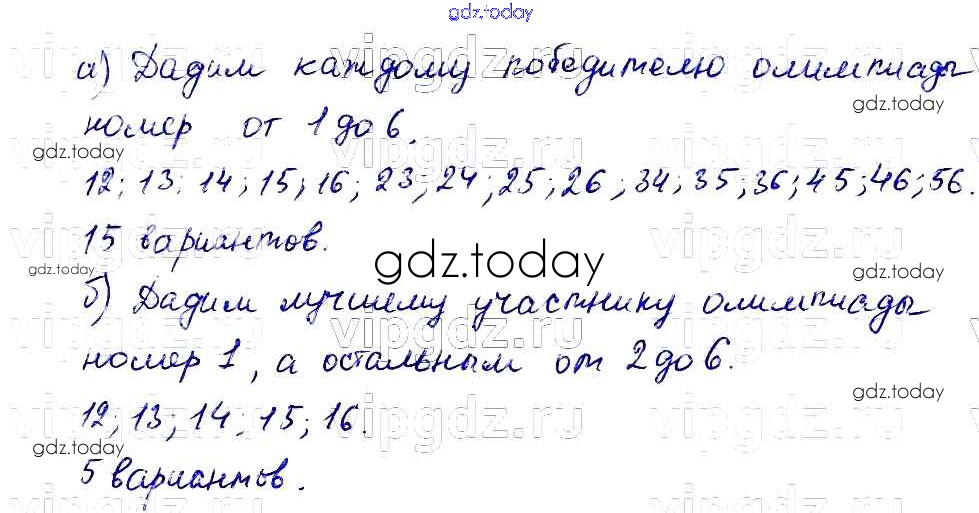 gdz.today
а) Дадим каждому победителю олимпиады
gdz.today
номер от 1 до 6.
gdz.today
12; 13; 14; 15; 16; 23; 24; 25; 26; 34; 35; 36; 45; 46; 56.
15 вариантов.
gdz.today
gdz.today
gdz.today
б) Дадим лучшему участнику олимпиады
номер 1, а остальным от 2 до 6.
gdz.today
12; 13; 14; 15; 16.
gdz.today
5 вариантов.
vipgdz.ru